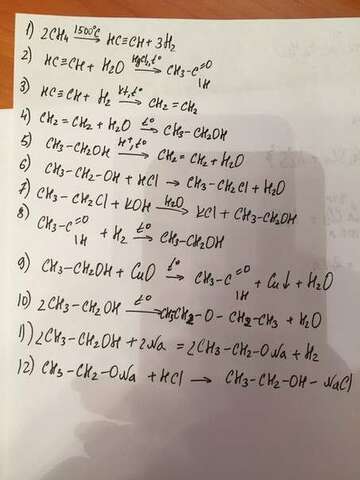 1) 2CH₄ 1500°C→ HC≡CH + 3H₂
2) HC≡CH + H₂O HgCl₂, t°→ CH₃-C=O
H
3) HC≡CH + H₂ kt, t°→ CH₂=CH₂
4) CH₂=CH₂ + H₂O t°→ CH₃-CH₂OH
5) CH₃-CH₂OH H⁺, t°→ CH₂=CH₂ + H₂O
6) CH₃-CH₂-OH + HCl → CH₃-CH₂Cl + H₂O
7) CH₃-CH₂Cl + KOH H₂O→ KCl + CH₃-CH₂OH
8) CH₃-C=O + H₂ t°→ CH₃-CH₂OH
H
9) CH₃-CH₂OH + CuO t°→ CH₃-C=O + Cu↓ + H₂O
H
10) 2CH₃-CH₂OH t°→ CH₃CH₂-O-CH₂-CH₃ + H₂O
11) 2CH₃-CH₂OH + 2Na = 2CH₃-CH₂-ONa + H₂
12) CH₃-CH₂-ONa + HCl → CH₃-CH₂-OH - NaCl